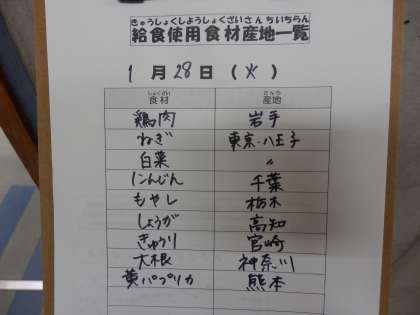 きゅうしょくしようしょくざいさんちいちらん
給食使用食材産地一覧
1月28日(火)
しょくざい さんち
食材 産地
鶏肉 岩手
ねぎ 東京・八王子
白菜 〃
にんじん 千葉
もやし 栃木
しょうが 高知
きゅうり 宮崎
大根 神奈川
黄パプリカ 熊本